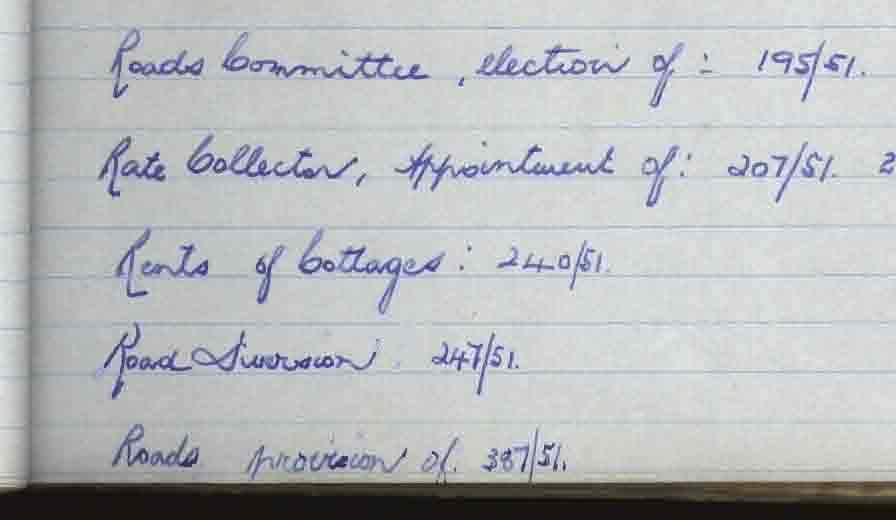 Roads Committee, election of :- 195/51.
Rate Collector, Appointment of: 207/51. 2
Rents of Cottages: 240/51.
Road Diversion. 247/51.
Roads provision of. 387/51.